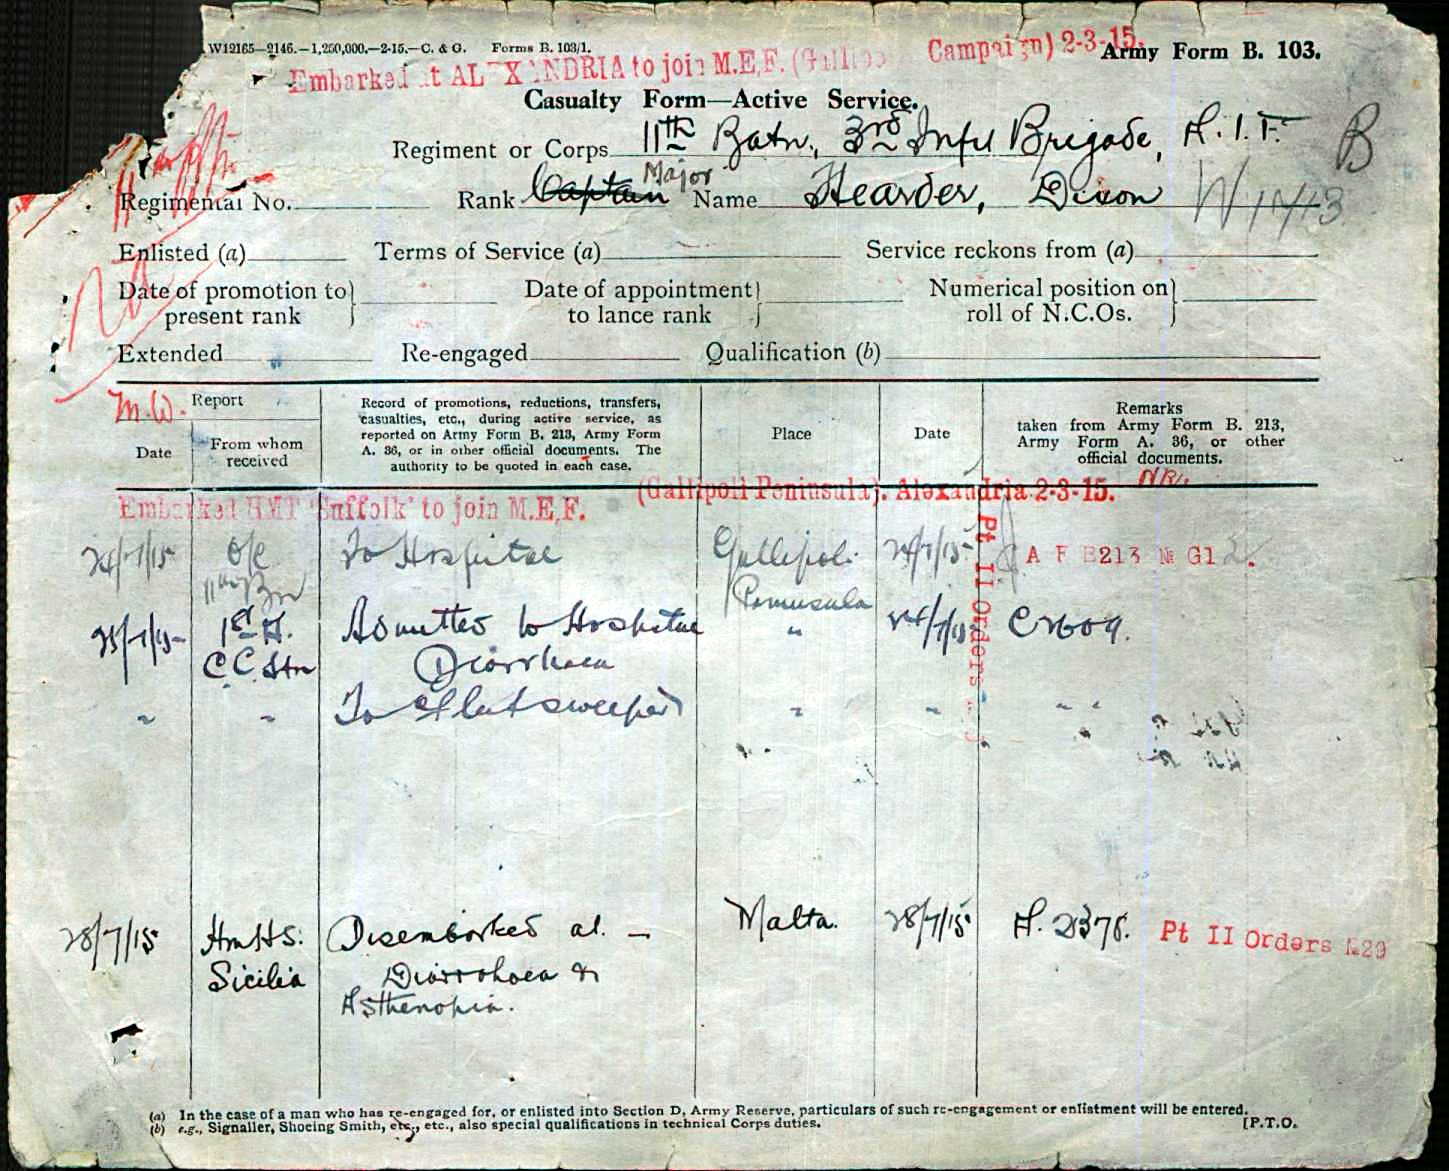 W12165—2146.—1,250,000.—2-15.—C. & G. Forms B. 103/1.
Army Form B. 103.
Embarked at ALEXANDRIA to join M.E.F. (Gallipoli Campaign) 2-3-15.
Casualty Form—Active Service.
Regiment or Corps 11th Batn., 3rd Infy Brigade, A.I.F.
B
Regimental No. Rank Captain Major Name Hearder, Dixon
Enlisted (a) Terms of Service (a) Service reckons from (a)
Date of promotion to present rank
Date of appointment to lance rank
Numerical position on roll of N.C.Os.
Extended Re-engaged Qualification (b)
M.W.
Report
Date
From whom received
Record of promotions, reductions, transfers,
casualties, etc., during active service, as
reported on Army Form B. 213, Army Form
A. 36, or in other official documents. The
authority to be quoted in each case.
Place
Date
Remarks
taken from Army Form B. 213,
Army Form A. 36, or other
official documents.
Embarked HMT 'Suffolk' to join M.E.F. (Gallipoli Peninsula). Alexandria 2-3-15.
24/7/15 O/C 11th Bn To Hospital Gallipoli Peninsula 24/7/15 A F B213 № G1
25/7/15 1st A. C.C. Stn Admitted to Hospital Diarrhoea " 24/7/15 C2609.
" " To Fleetsweeper " " " "
Pt II Orders
28/7/15 HMHS. Sicilia Disembarked at — Diarrhoea & Asthenopia. Malta. 28/7/15 A. 2376. Pt II Orders №29
(a) In the case of a man who has re-engaged for, or enlisted into Section D, Army Reserve, particulars of such re-engagement or enlistment will be entered.
(b) e.g., Signaller, Shoeing Smith, etc., etc., also special qualifications in technical Corps duties.
[P.T.O.